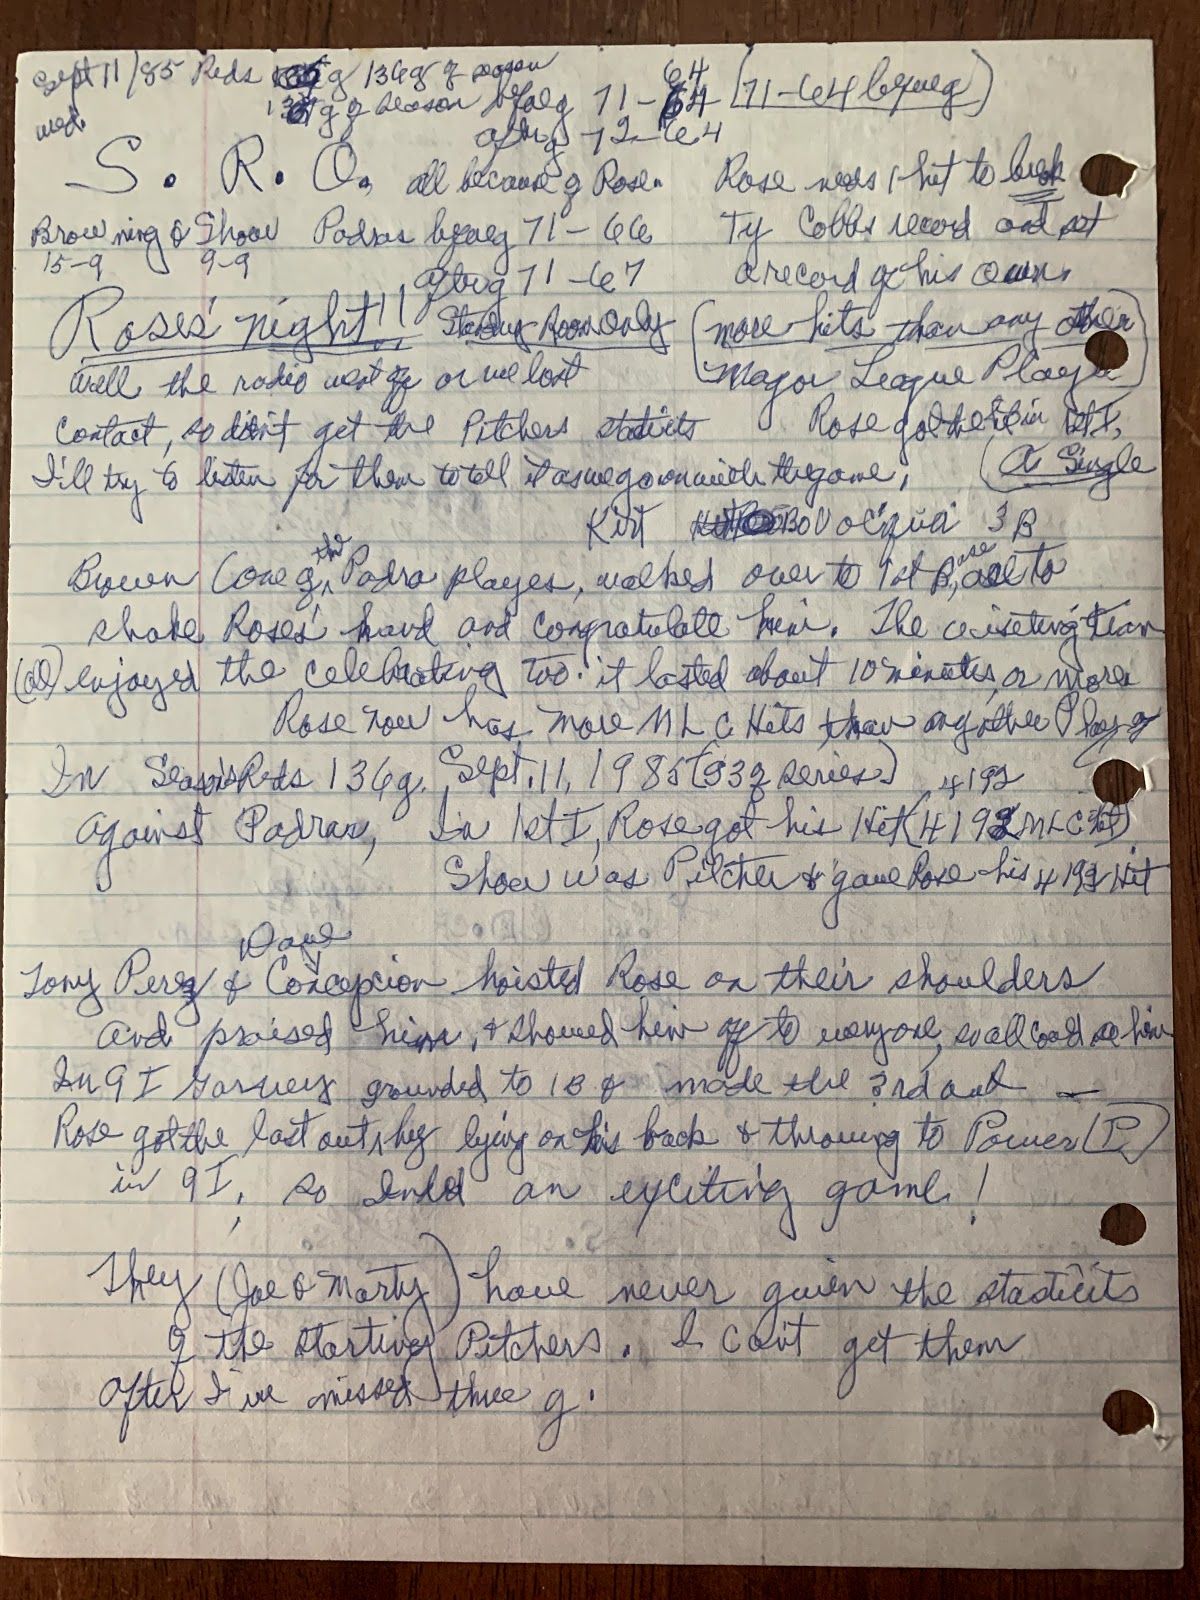 Sept 11/85 Reds g 136g g season
Wed. 136g g season before g 71-64 (71-64 before g)
after g 72-64
S. R. O. all because g Rose. Rose needs 1 hit to break
Browning & Show Padras before g 71-66 Ty Cobbs record and set
15-9 9-9 after g 71-67 a record g his own.
Roses' night!! Standing Room Only (more hits than any other
Well the radio went off or we lost Major League Player)
contact, so didn't get the Pitchers statics Rose got the Hit in 1st I,
I'll try to listen for them to tell it as we go on with the game, (a Single
Kirt Bovacqua 3B
Brown (one g the Padra players, walked over to 1st B, also to
shake Roses' hand and congratulate him. The visiteting team
(all) enjoyed the celebrating too. it lasted about 10 minutes, or more.
Rose now has more M L C Hits than any other Player
In Season's Reds 136g. Sept. 11, 1985 (3 g series) 4192
against Padras, In 1st I, Rose got his Hit (4192 M L C Hit)
Show was Pitcher & gave Rose his 4192 Hit
Dave
Tony Perez & Concepcion hoisted Rose on their shoulders
and praised him, & showed him off to everyone, so all could see him
In 9 I Garvey grounded to 1B & made the 3rd out —
Rose got the last out, by lying on his back & throwing to Power (P)
in 9 I, so ended an exciting game!
They (Joe & Marty) have never given the statícits
g the starting Pitchers. I can't get them
after I've missed three g.